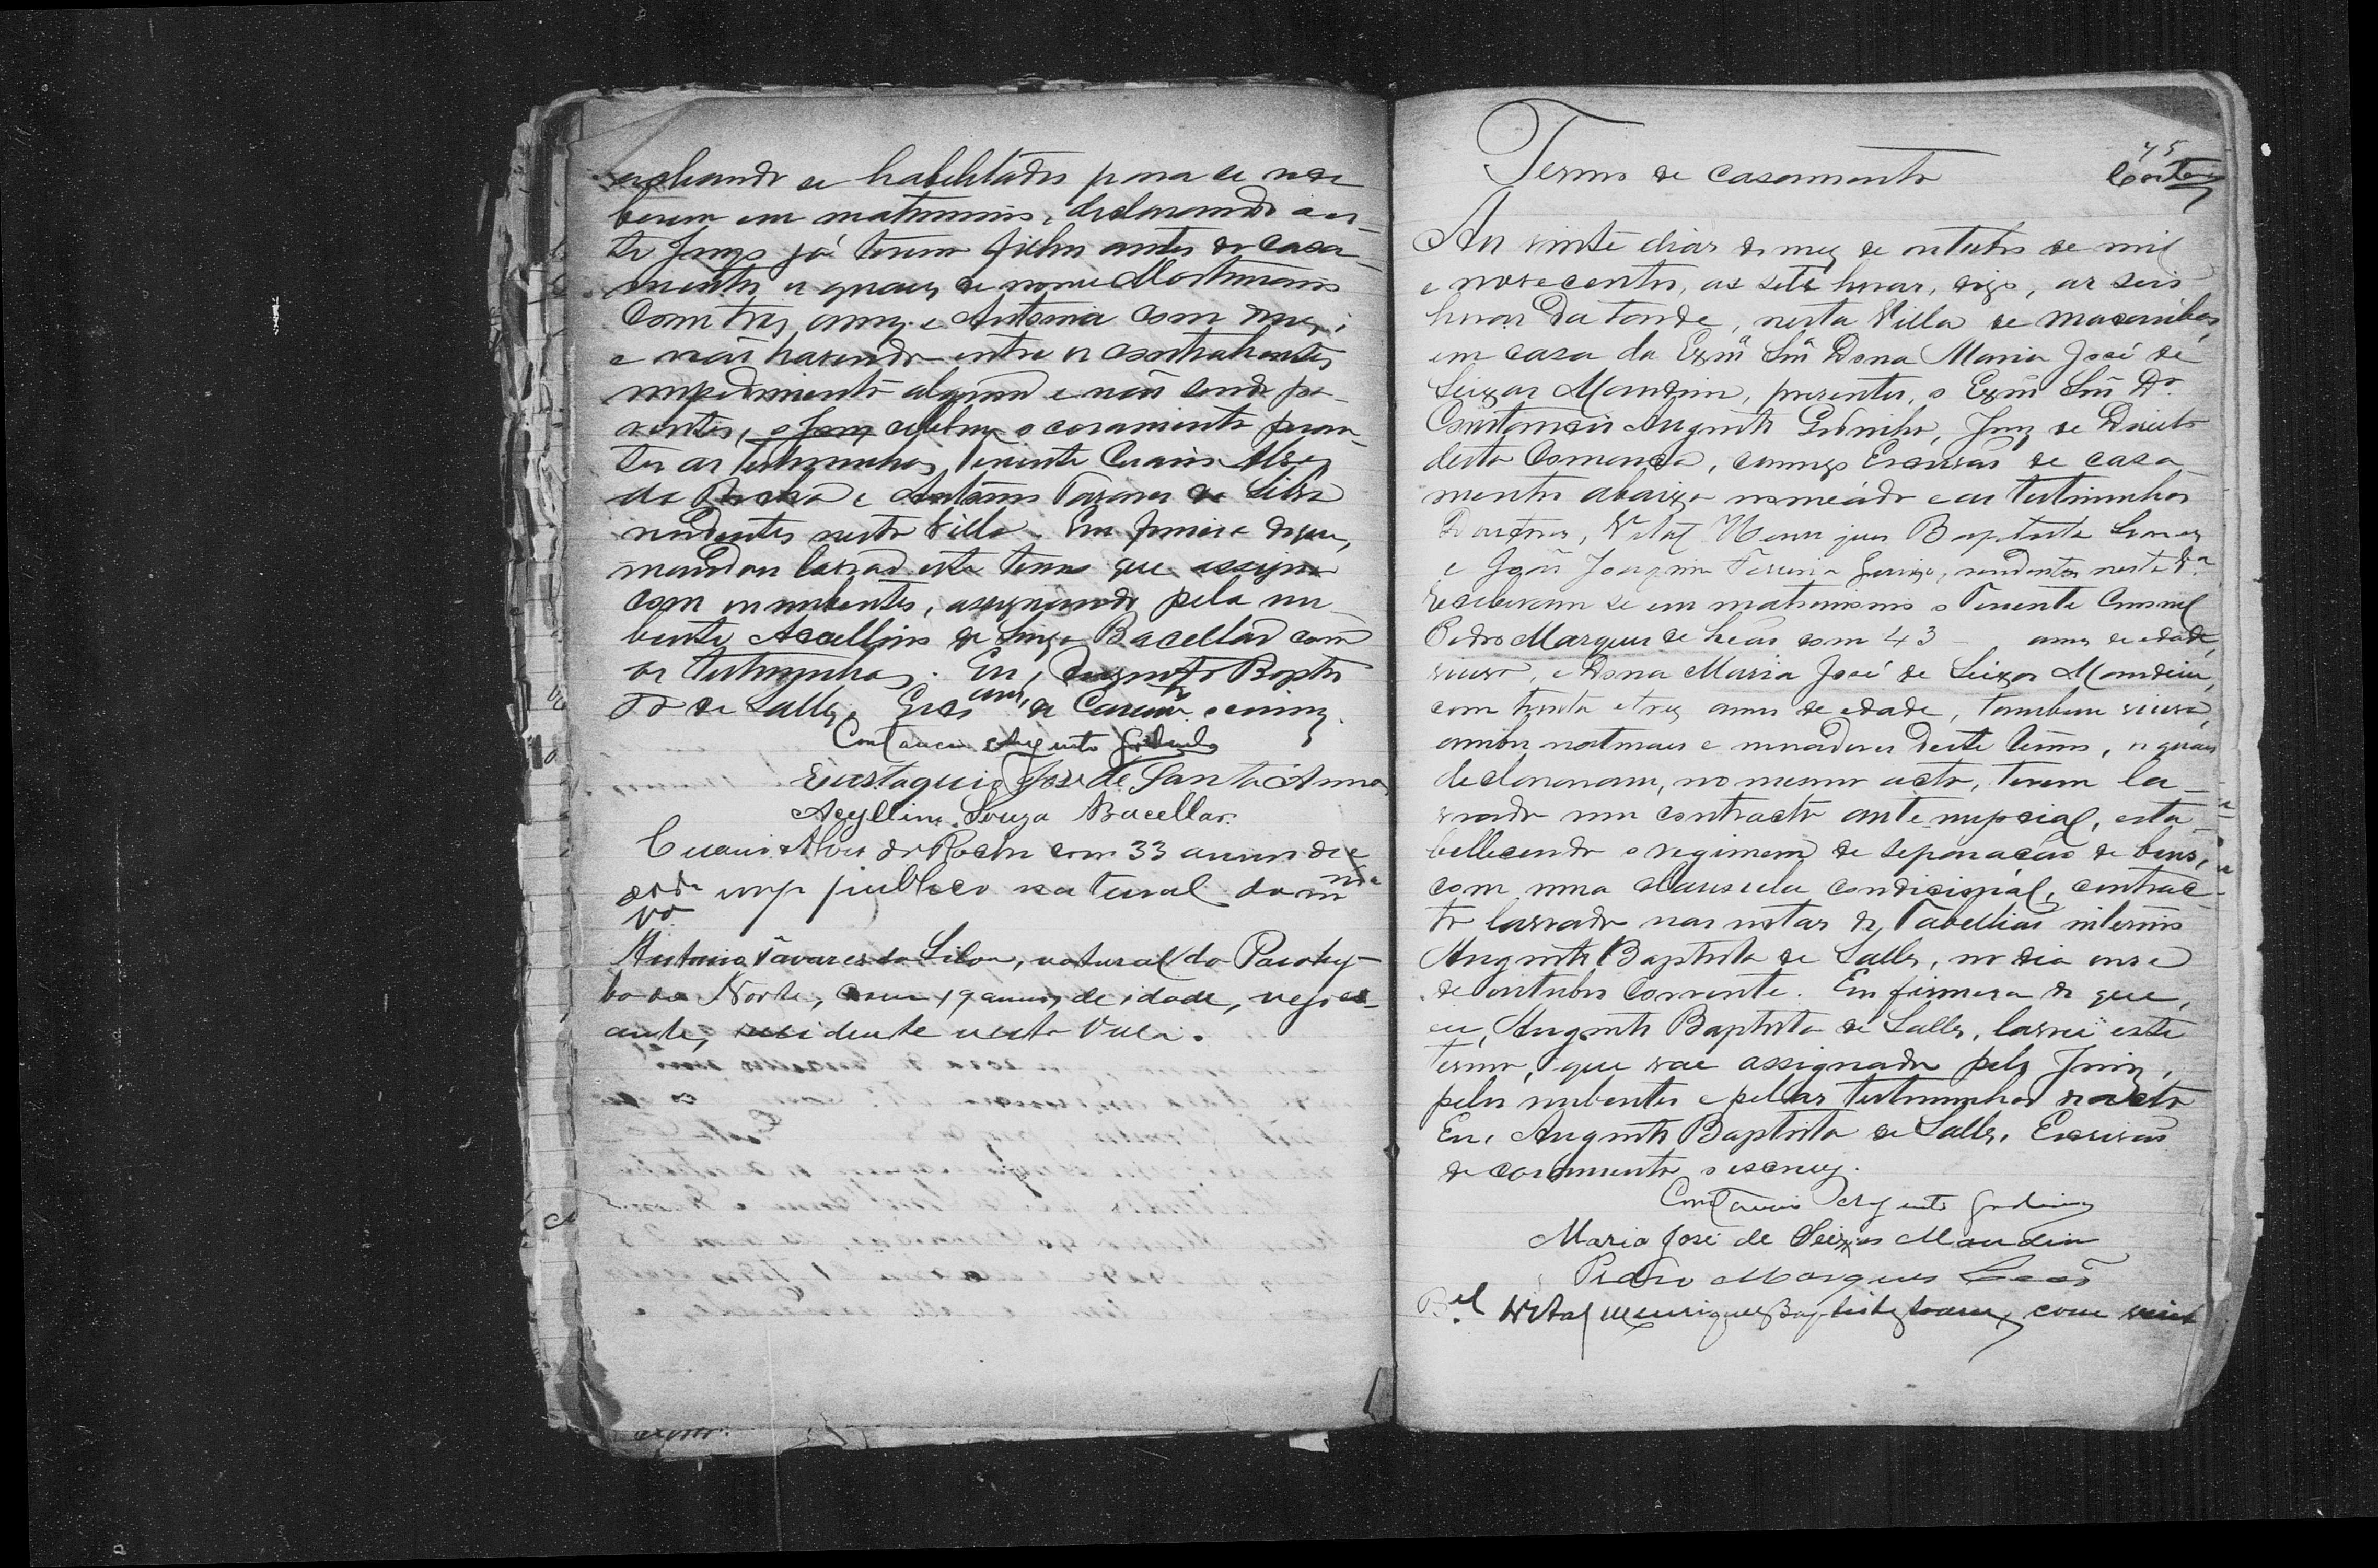 achando se habilitados para se rece
berem em matrimonio, declarando a es
te Juiz já terem filhos antes do casa
mento os quaes de nome
Com tres annos e Antonia com
e não havendo entre os contrahentes
impedimento algum e não sendo pa
rentes, o Juiz celebrou o casamento peran
te as testemunhas Tenente Alves
da Rocha e Antonio Tavares da Silva
residentes nesta Villa. Em firmeza do que,
mandou lavrar este termo que assigna
com os nubentes, assignando pela nu
bente Acellino de Souza Bacellar com
as testemunhas. Eu, Augusto Baptis
ta de Salles, Escam de Casam.to o escrevy.
Constancio Augusto Godinho
Eustaquio José de Santa Anna
Acyllino Souza Bacellar.
Alves da Rocha com 33 annos de
emp publico natural da
Antonio Tavares da Silva, natural da Parahy-
ba do Norte, com 19 annos de idade, negoci-
ante, residente nesta Villa.
Termo de casamento
45
Aos vinte dias do mez de outubro de mil
e novecentos, as sete horas, digo, as seis
horas da tarde, nesta Villa de Macaúbas,
em casa da Exmª Snrª Dona Maria José de
Seixas Mandim, presentes, o Exmº Snr Dr.
Constancio Augusto Godinho, Juiz de Direito
desta Comarca, commigo Escrivão de casa
mentos abaixo nomeado e as testemunhas
Doutores, Vital Henriques Baptista Soares
e João Joaquim Ferreira residentes nesta Vª
receberam se em matrimonio o Tenente Coronel
Pedro Marques de Leão com 43 annos de edade,
viuvo, e Dona Maria José de Seixas Mandim,
com trinta e tres annos de edade, tambem viuva,
ambos naturaes e moradores deste termo, os quaes
declararam, no mesmo acto, terem la
vrado um contracto ante-nupcial, esta
bellecendo o regimem de separação de bens,
com uma clausula condicional, contrac
to lavrado nas notas do Tabellião interino
Augusto Baptista de Salles, no dia onze
de outubro corrente. Em firmeza do que,
eu, Augusto Baptista de Salles, lavrei este
termo, que vae assignado pelo Juiz,
pelos nubentes e pelas testemunhas do acto
Eu, Augusto Baptista de Salles, Escrivão
de casamento, o escrevy.
Constancio Augusto Godinho
Maria José de Seixas Mandim
Pedro Marques Leão
Bel Vital Henriques Baptista Soares, com vinte